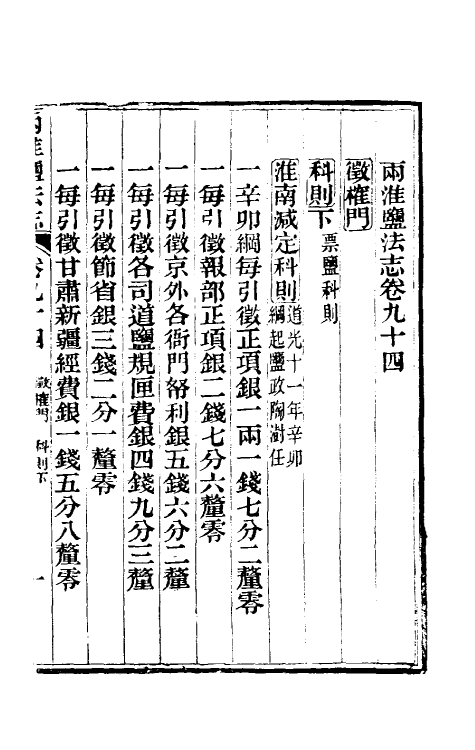 兩淮鹽法志卷九十四
徵榷門
科則下 票鹽科則
淮南減定科則 道光十一年辛卯綱起鹽政陶澍任
一辛卯綱每引徵正項銀一兩一錢七分二釐零
一每引徵報部正項銀二錢七分六釐零
一每引徵京外各衙門帑利銀五錢六分二釐
一每引徵各司道鹽規匣費銀四錢九分三釐
一每引徵節省銀三錢二分一釐零
一每引徵甘肅新疆經費銀一錢五分八釐零
兩淮鹽法志 卷九十四 徵榷門 科則下 一